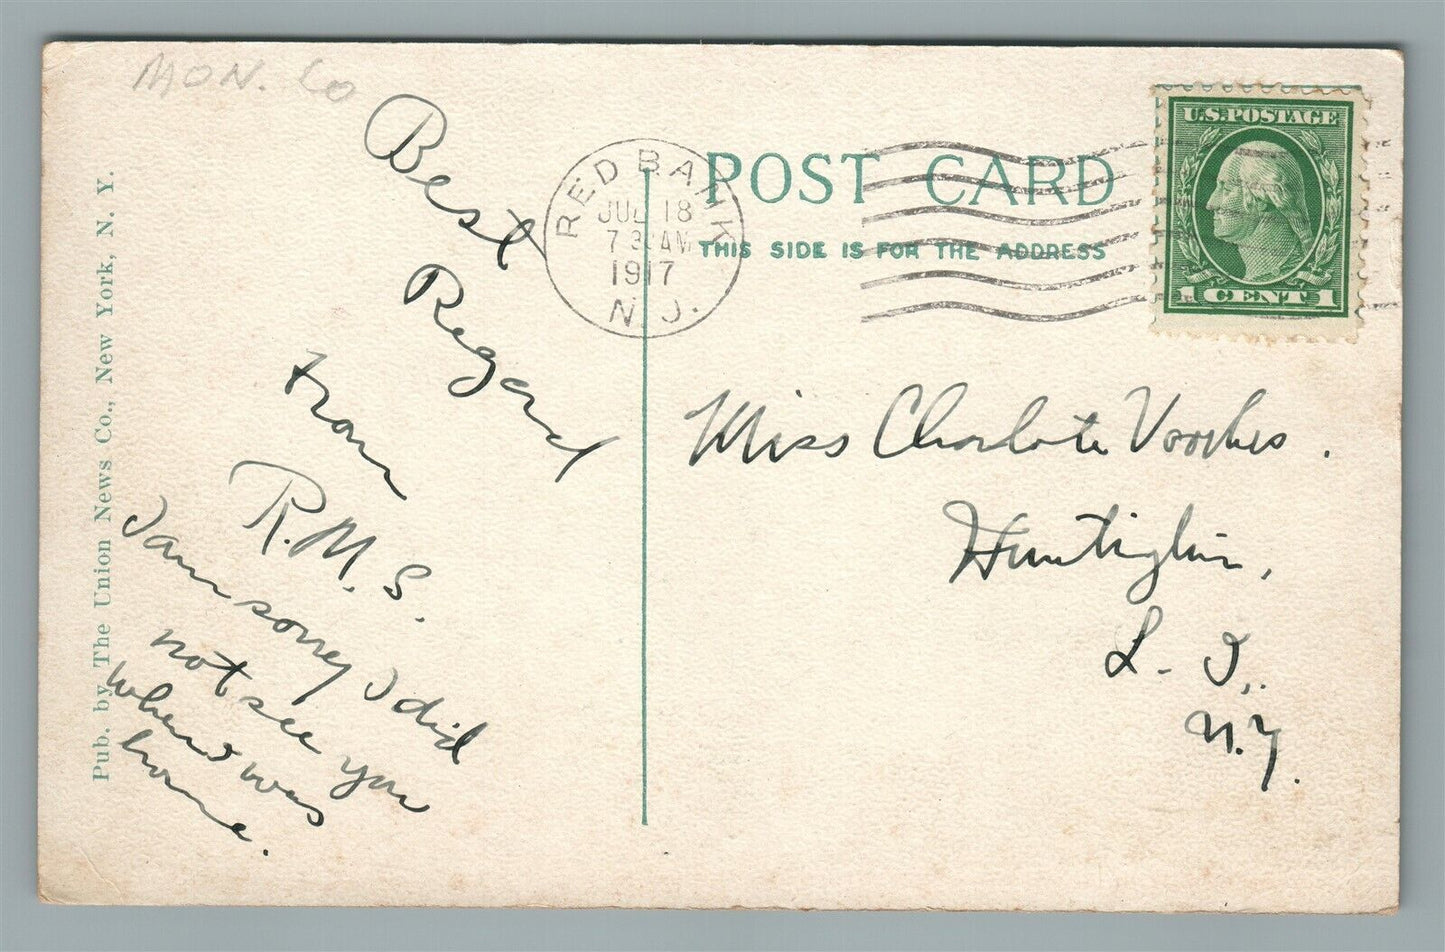 MON. Co
Best
Regard
from
R. M. S.
I am sorry I did
not see you
when I was
home.
Pub. by The Union News Co., New York, N. Y.
RED BANK
JUL 18
7 3 AM
1917
N. J.
POST CARD
THIS SIDE IS FOR THE ADDRESS
U.S. POSTAGE
1 CENT 1
Miss Charlotte Voorhes.
Huntington,
L. I.,
N.Y.